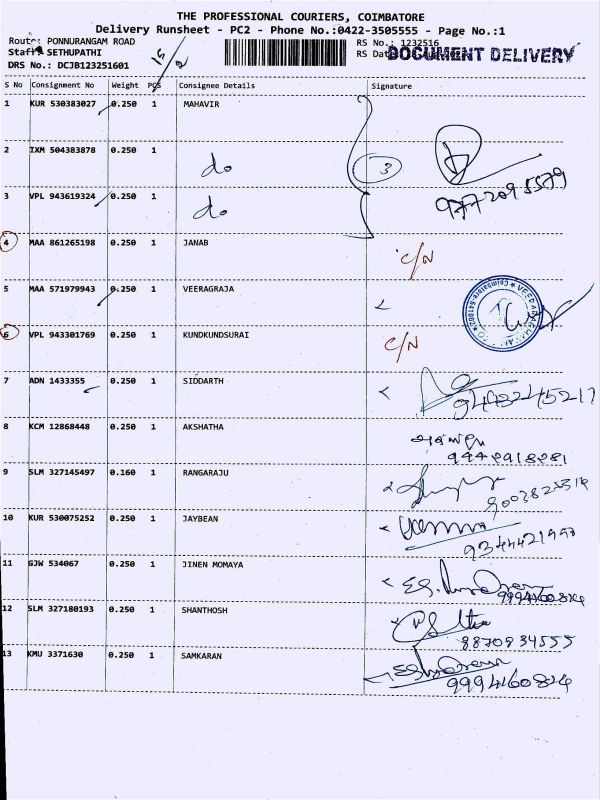 THE PROFESSIONAL COURIERS, COIMBATORE
Delivery Runsheet - PC2 - Phone No.:0422-3505555 - Page No.:1
Route: PONNURANGAM ROAD
RS No.: 1232516
Staff: SETHUPATHI
RS Dat
DOCUMENT DELIVERY
DRS No.: DCJB123251601
S No Consignment No Weight PCS Consignee Details Signature
1 KUR 530383027 0.250 1 MAHAVIR
2 IXM 504383878 0.250 1 do
3
3 VPL 943619324 0.250 1 do
9772095579
4 MAA 861265198 0.250 1 JANAB C/N
5 MAA 571979943 0.250 1 VEERAGRAJA
6 VPL 943301769 0.250 1 KUNDKUNDSURAI C/N
7 ADN 1433355 0.250 1 SIDDARTH
8 KCM 12868448 0.250 1 AKSHATHA
9 SLM 327145497 0.160 1 RANGARAJU
10 KUR 530075252 0.250 1 JAYBEAN
11 GJW 534067 0.250 1 JINEN MOMAYA
9994160814
12 SLM 327180193 0.250 1 SHANTHOSH
8870934555
13 KMU 3371630 0.250 1 SAMKARAN
9994160814